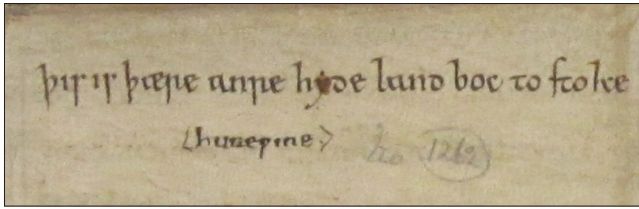 þis is þære anre hyde land boc to stoke
<huneƿine> 1262